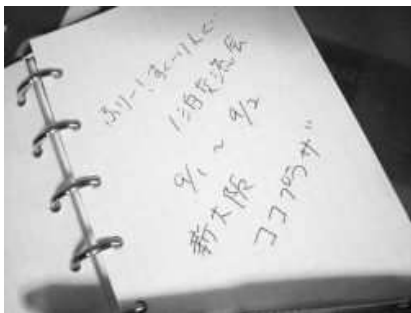 ふりー!すくーりんぐ…
1泊交流会
9/1 ~ 9/2
新大阪
ココプラザ